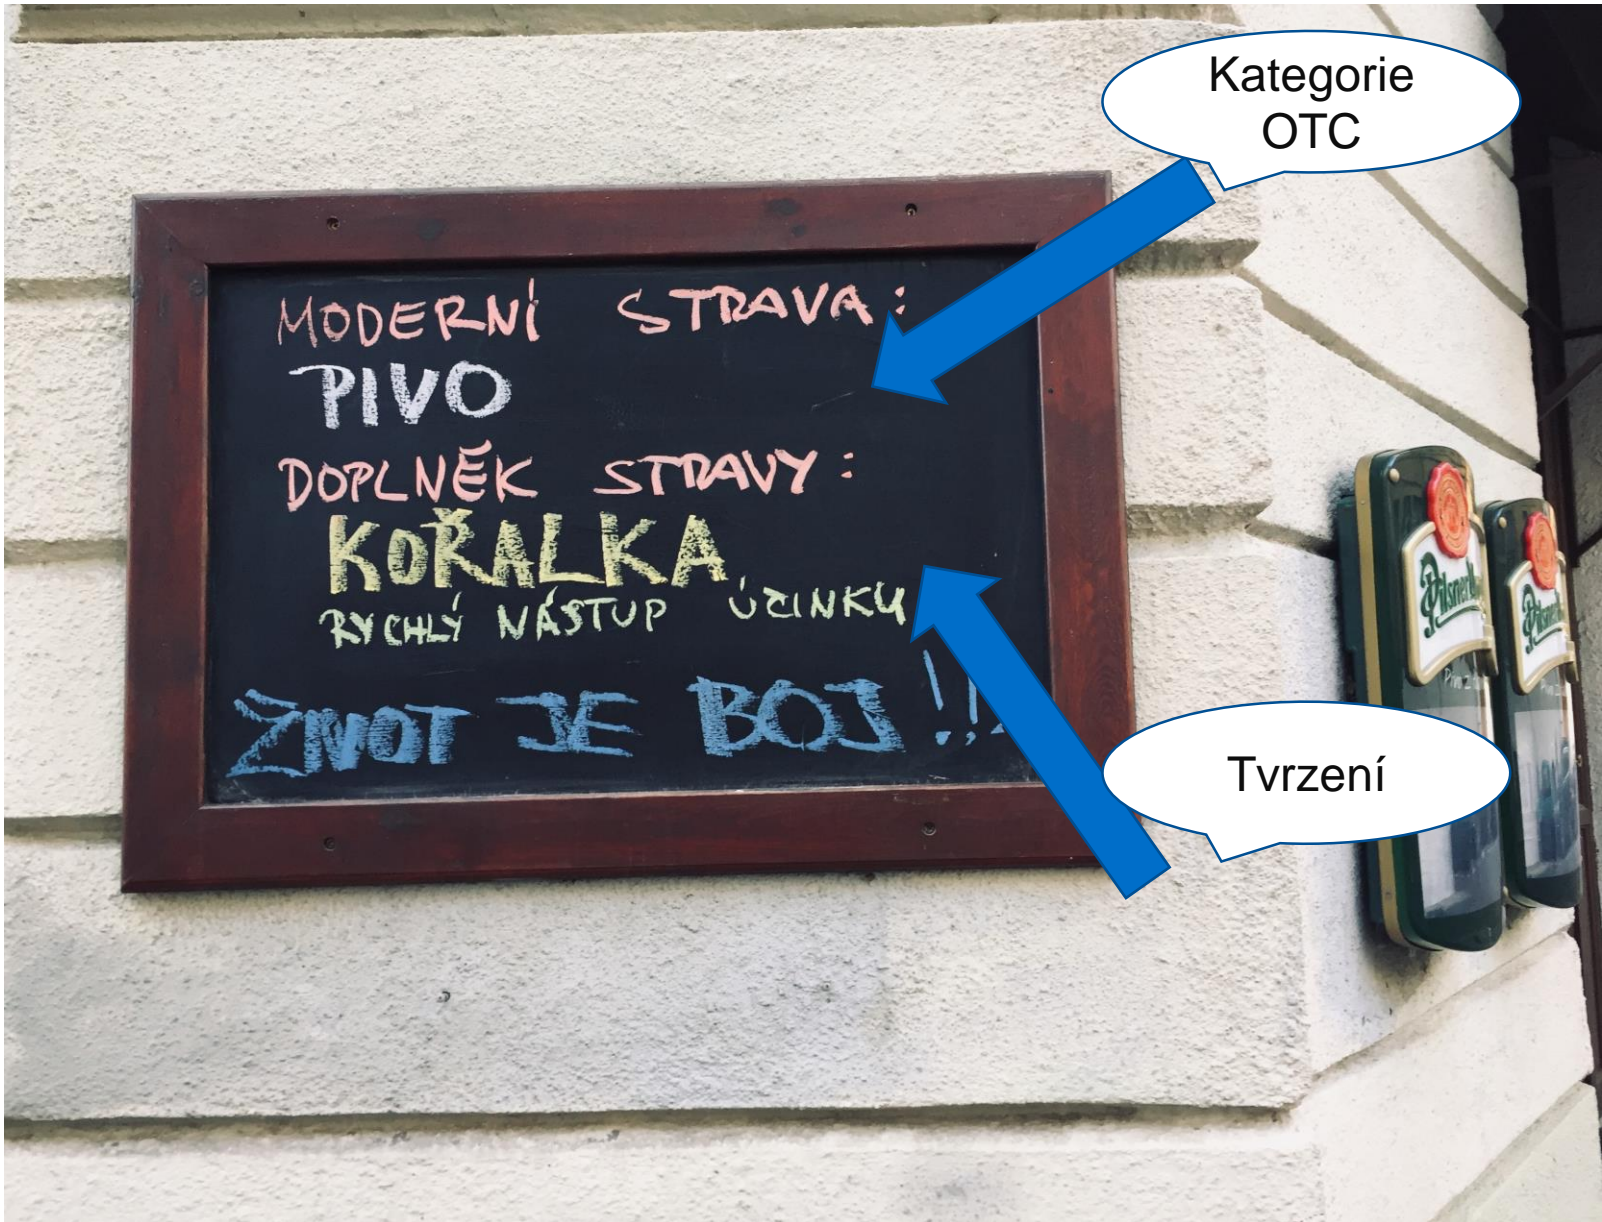 Kategorie
OTC
MODERNÍ STRAVA:
PIVO
DOPLNĚK STRAVY:
KOŘALKA
RYCHLÝ NÁSTUP ÚČINKU
ŽIVOT JE BOJ!!!
Tvrzení
Pilsner
Pilsner